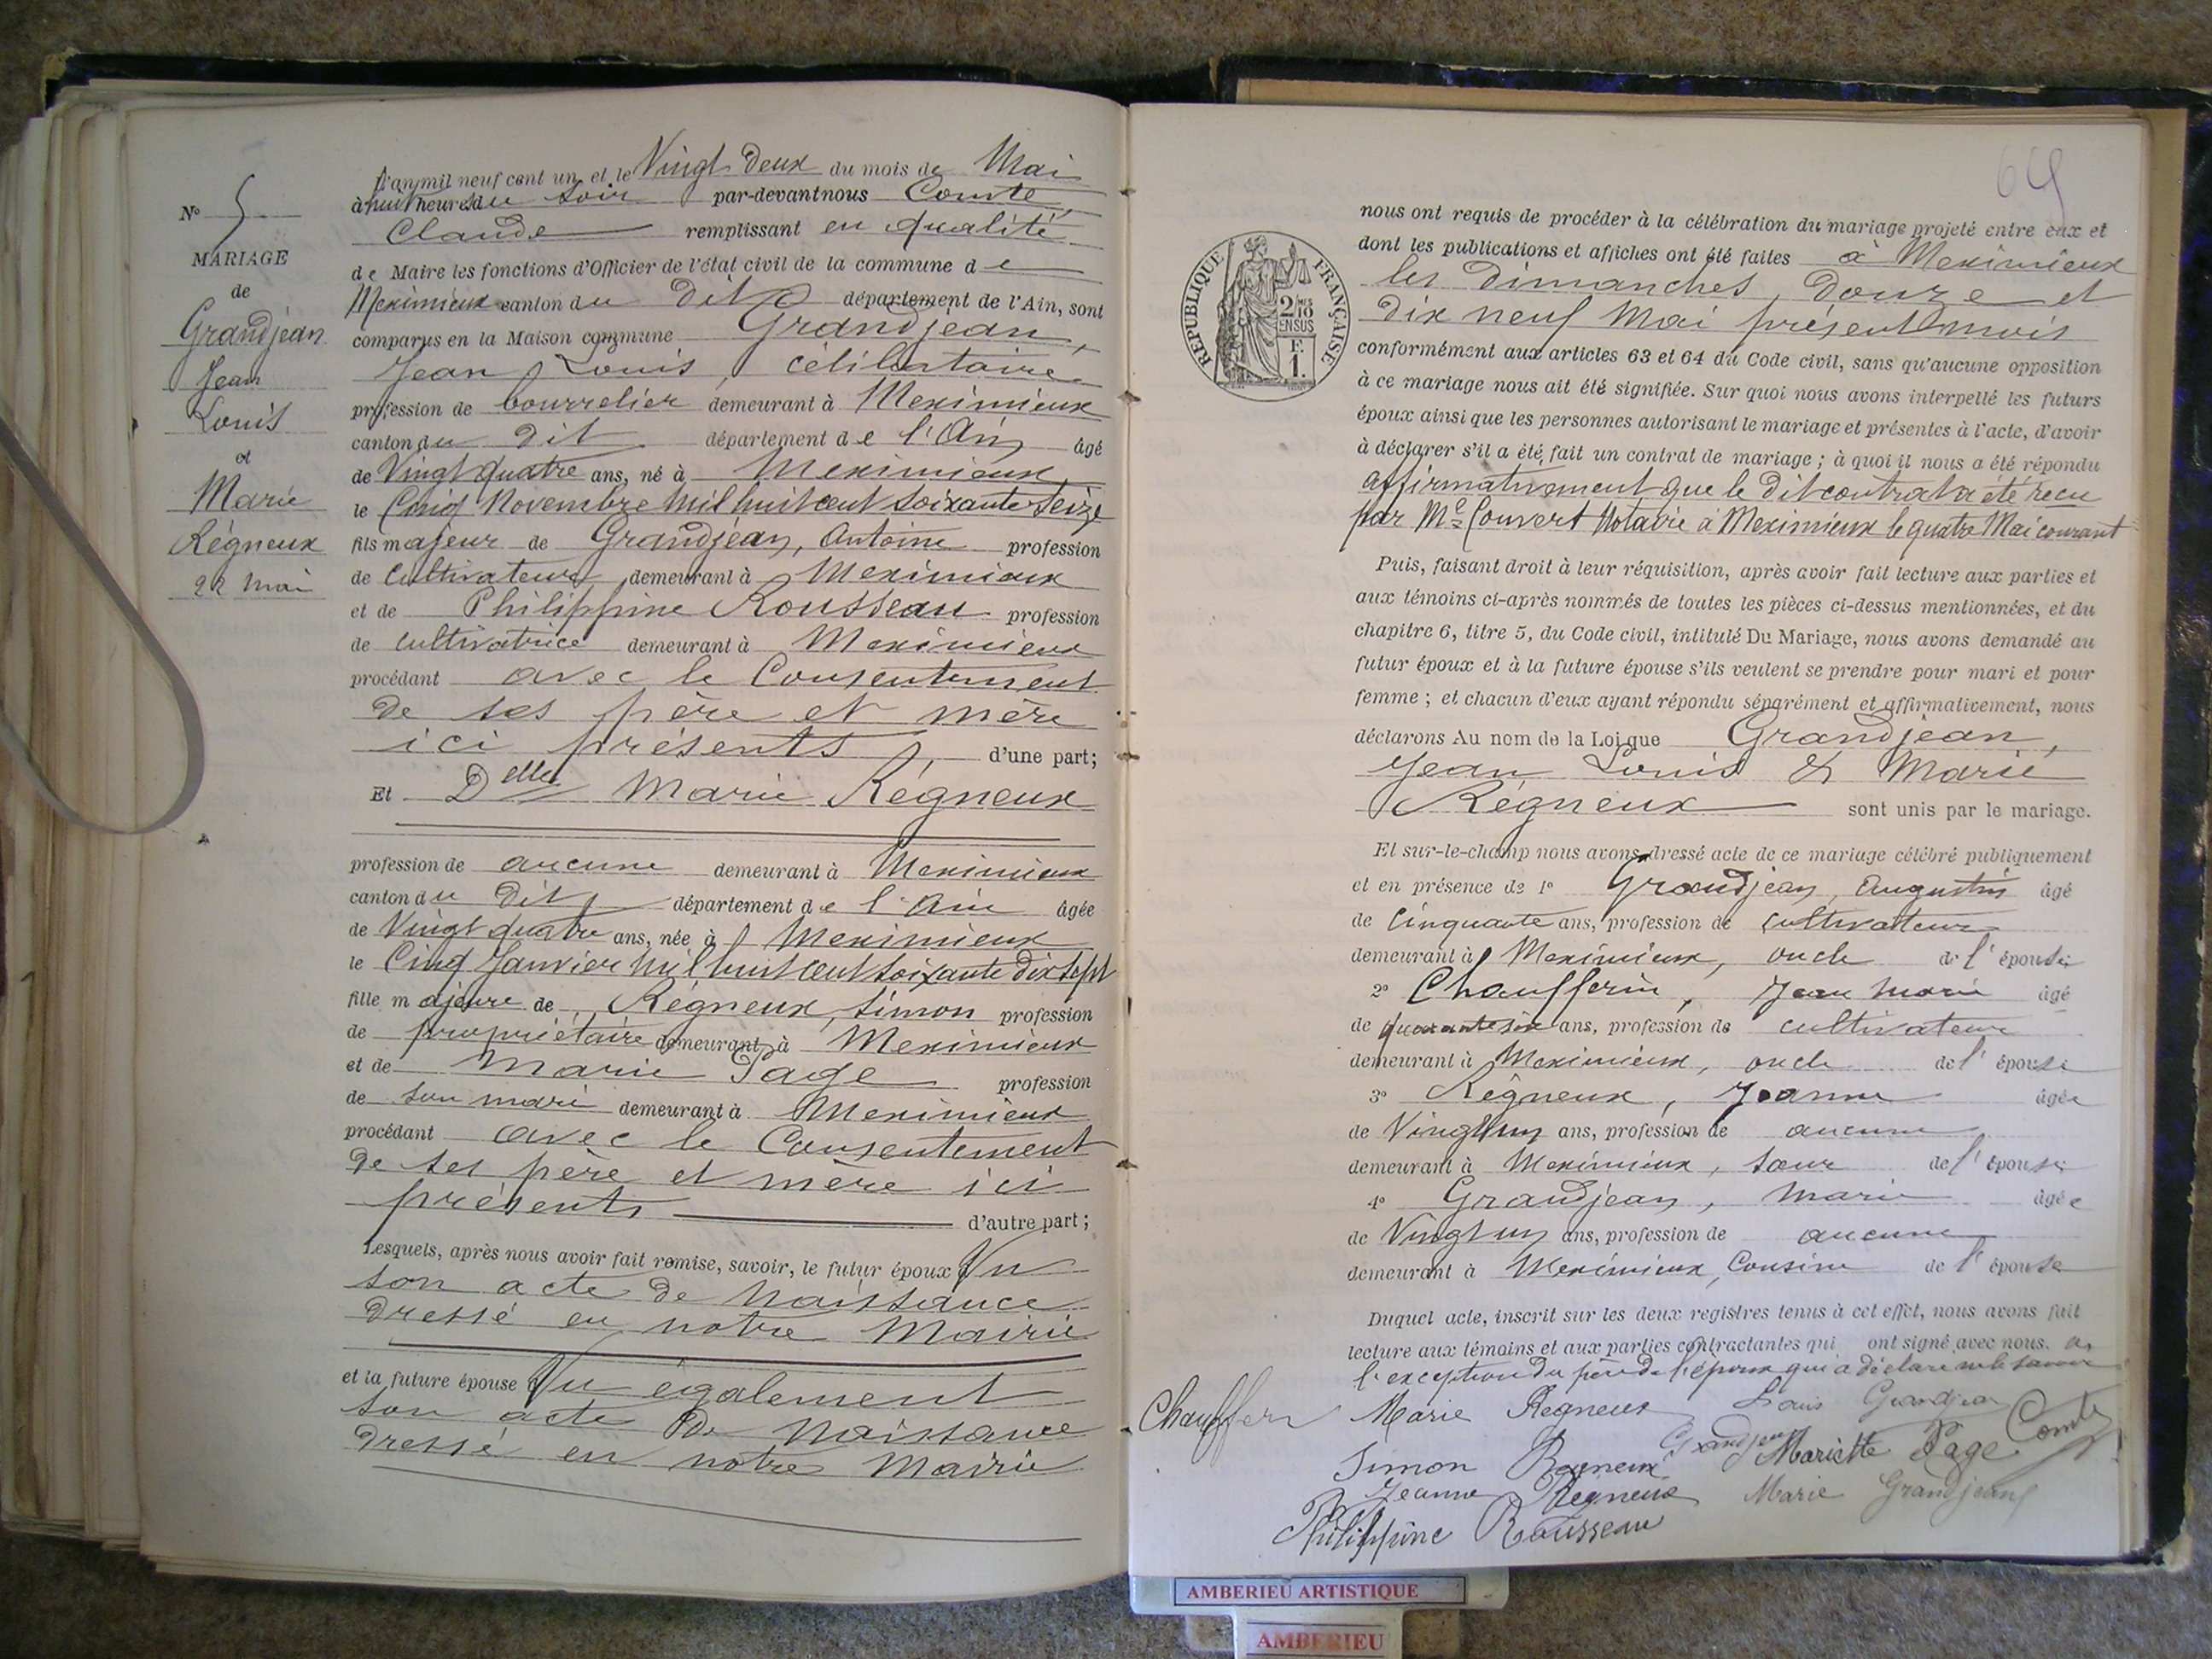 N° 5
MARIAGE
de
Grandjean
Jean
Louis
et
Marie
Régneux
22 mai
L'an mil neuf cent un et le Vingt Deux du mois de Mai
à huit heures du soir par-devant nous Comte,
Claude remplissant en qualité
de Maire les fonctions d'Officier de l'état civil de la commune de
Meximieux canton du Dit département de l'Ain, sont
comparus en la Maison commune Grandjean,
Jean Louis, célibataire
profession de bourrelier demeurant à Meximieux
canton du Dit département de l'Ain âgé
de Vingt quatre ans, né à Meximieux
le Cinq Novembre mil huit cent soixante seize
fils majeur de Grandjean, Antoine profession
de Cultivateur demeurant à Meximieux
et de Philippine Rousseau profession
de cultivatrice demeurant à Meximieux
procédant avec le Consentement
de ses père et mère
ici présents, d'une part;
Et Delle Marie Régneux
profession de aucune demeurant à Meximieux
canton du Dit département de l'Ain âgée
de Vingt quatre ans, née à Meximieux
le Cinq Janvier mil huit cent soixante dix sept
fille majeure de Régneux, Simon profession
de propriétaire demeurant à Meximieux
et de Marie Page profession
de son mari demeurant à Meximieux
procédant avec le Consentement
de ses père et mère ici
présents d'autre part;
Lesquels, après nous avoir fait remise, savoir, le futur époux Vu
son acte de Naissance
dressé en notre Mairie
et la future épouse Vu également
son acte de Naissance
dressé en notre Mairie
69
RÉPUBLIQUE FRANÇAISE
2/10
EN SUS
F.
1.
nous ont requis de procéder à la célébration du mariage projeté entre eux et
dont les publications et affiches ont été faites à Meximieux
les Dimanches, Douze et
Dix neuf Mai présent mois
conformément aux articles 63 et 64 du Code civil, sans qu'aucune opposition
à ce mariage nous ait été signifiée. Sur quoi nous avons interpellé les futurs
époux ainsi que les personnes autorisant le mariage et présentes à l'acte, d'avoir
à déclarer s'il a été fait un contrat de mariage; à quoi il nous a été répondu
affirmativement que le Dit contrat a été reçu
par Me Couvert Notaire à Meximieux le quatre Mai courant
Puis, faisant droit à leur réquisition, après avoir fait lecture aux parties et
aux témoins ci-après nommés de toutes les pièces ci-dessus mentionnées, et du
chapitre 6, titre 5, du Code civil, intitulé Du Mariage, nous avons demandé au
futur époux et à la future épouse s'ils veulent se prendre pour mari et pour
femme; et chacun d'eux ayant répondu séparément et affirmativement, nous
déclarons Au nom de la Loi que Grandjean,
Jean Louis & Marie
Régneux sont unis par le mariage.
Et sur-le-champ nous avons dressé acte de ce mariage célébré publiquement
et en présence de 1° Grandjean, Augustin âgé
de Cinquante ans, profession de cultivateur
demeurant à Meximieux, oncle de l'épouse
2° Chaufferin, Jean Marie âgé
de quarante six ans, profession de cultivateur
demeurant à Meximieux, oncle de l'épouse
3° Régneux, Jeanne âgée
de Vingt un ans, profession de aucune
demeurant à Meximieux, sœur de l'épouse
4° Grandjean, Marie âgée
de Vingt un ans, profession de aucune
demeurant à Meximieux, Cousine de l'épouse
Duquel acte, inscrit sur les deux registres tenus à cet effet, nous avons fait
lecture aux témoins et aux parties contractantes qui ont signé avec nous. a
l'exception du père de l'époux qui a déclaré ne le savoir
Marie Regneux Louis Grandjean
Grandjean Mariette Page Comte
Simon Regneux
Jeanne Regneux Marie Grandjean
Philippine Rousseau
AMBERIEU ARTISTIQUE
AMBERIEU